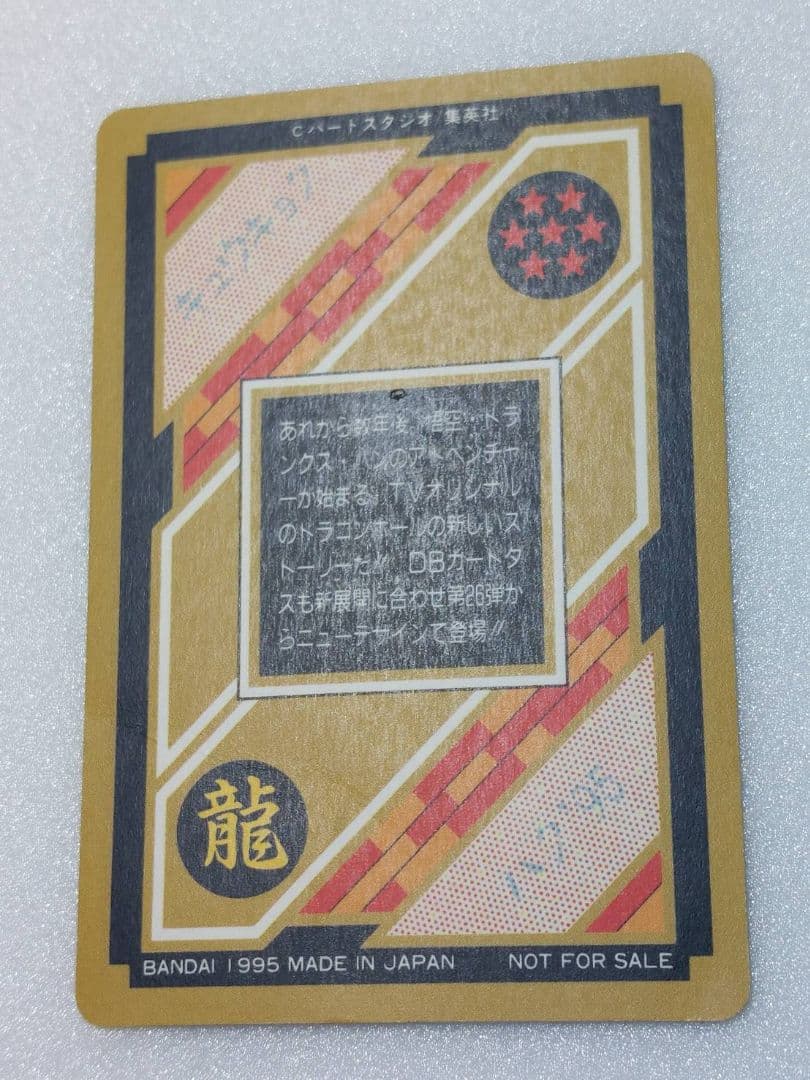 ©バードスタジオ/集英社
キュウキョク
あれから数年後、悟空・トラ
ンクス・パンのアドベンチャ
ーが始まる。TVオリジナル
のドラゴンボールの新しいス
トーリーだ!! DBカードダ
スも新展開に合わせ第26弾か
らニューデザインで登場!!
龍
BANDAI 1995 MADE IN JAPAN NOT FOR SALE